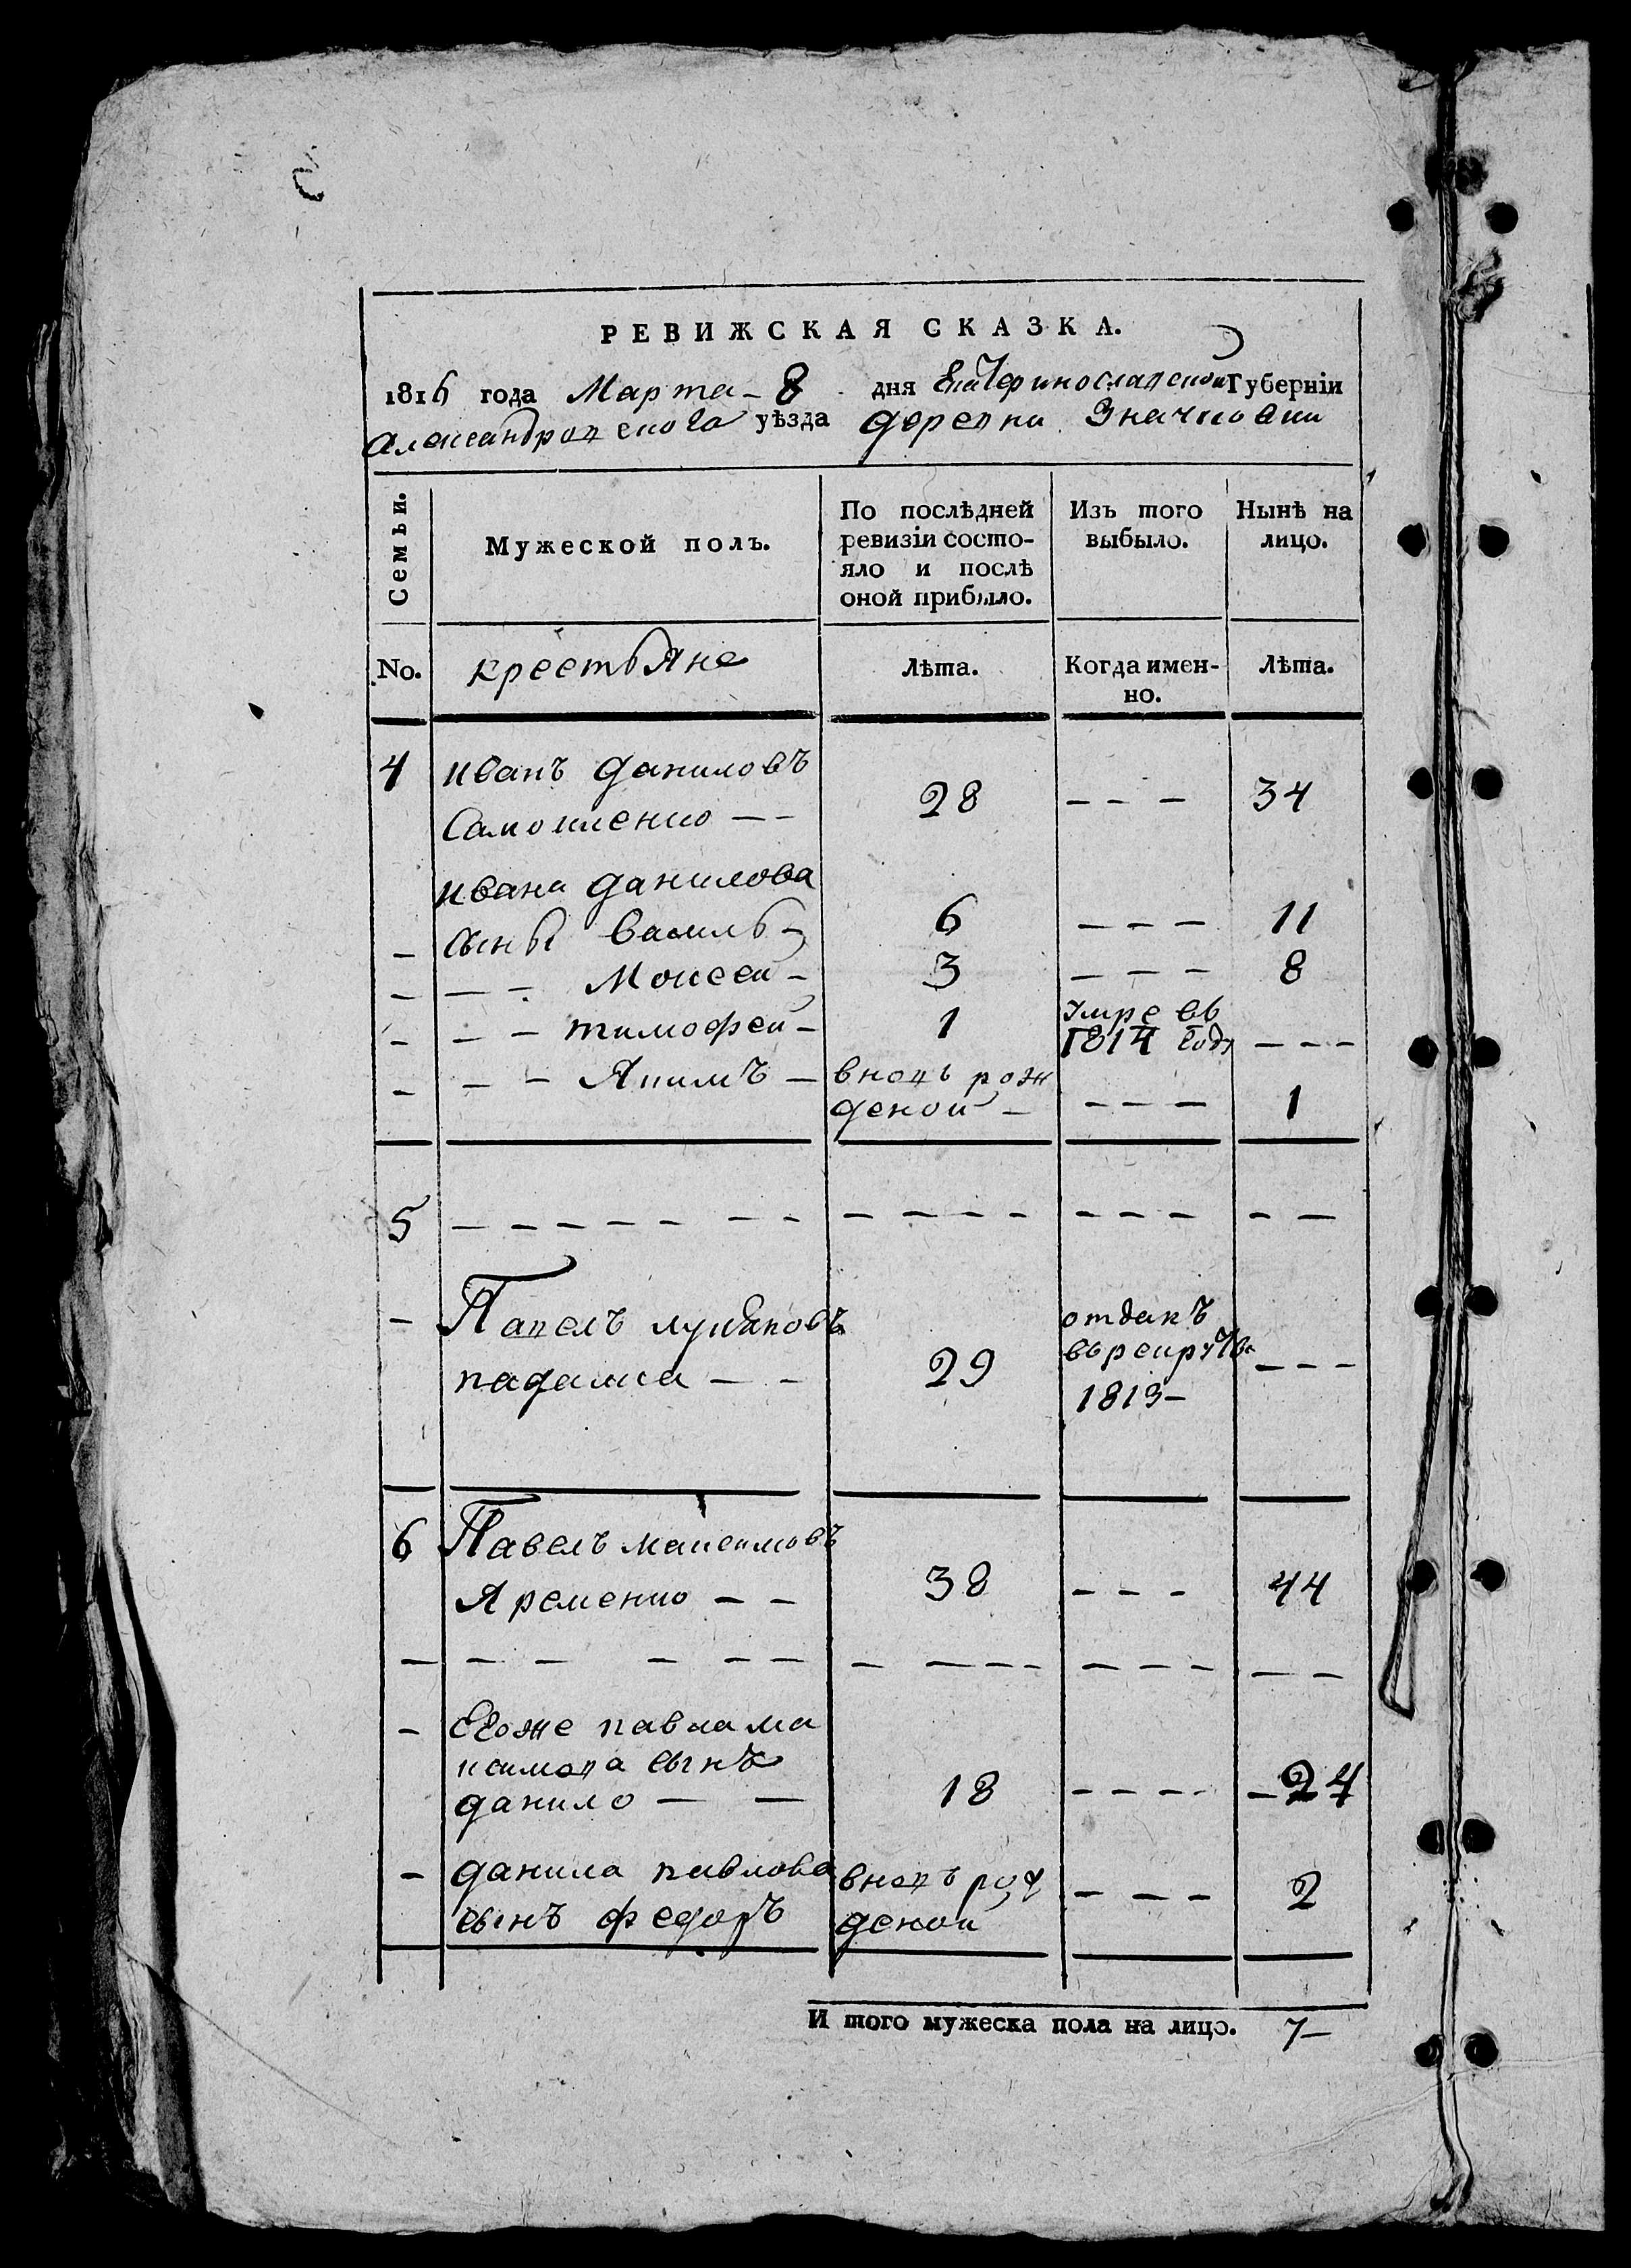 РЕВИЖСКАЯ СКАЗКА.
1816 года Марта - 8 дня Екатеринославской Губерніи
Александровского уѣзда деревни Значковки
Семьи.
Мужеской полъ.
По послѣдней
ревизіи состо-
яло и послѣ
оной прибыло.
Изъ того
выбыло.
Нынѣ на
лицо.
No.
крестьяне
Лѣта.
Когда имен-
но.
Лѣта.
4 иванъ даниловъ
Самойленко - - 28 - - - 34
ивана данилова
- сыны василь - 6 - - - 11
- - - Моисей - 3 - - - 8
- - - тимофей - 1 умре въ 1814 году - - -
- - - Якимъ - вновь рож
деной - - - - 1
5 - - - - - - - - - - - - - - - -
- Павелъ лукяновъ
падалка - - 29 отданъ
въ рекруты
1813 - - - -
6 Павелъ максимовъ
Яременко - - 38 - - - 44
- - - - - - - - - - - - - - - -
- Егоже павла ма
ксимова сынъ
данило - - 18 - - - - - 24
- данила павлова вновь рож
сынъ федоръ деной - - - 2
И того мужеска пола на лицо. 7 -